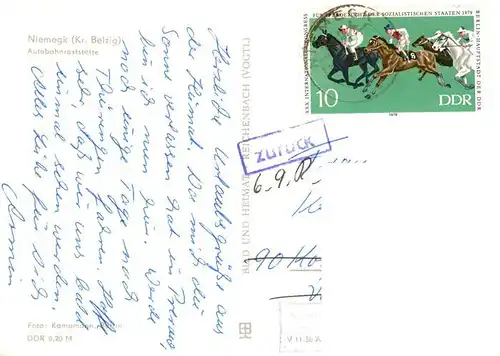 Niemegk (Kr. Belzig)
Autobahnraststätte
Herzliche Urlaubsgrüße aus
der Heimat. Da mich die
Sonne verlassen hat in
bin ich nun hier. Werde
noch einige Tage nach
Thüringen fahren. Hoffe
sehr daß wir uns bald
einmal sehen werden.
Alles Liebe für Dich
Armin
Foto: Kamomann,
DDR 0,20 M
BILD UND HEIMAT REICHENBACH (VOGTL)
XXX INTERNATIONALER KONGRESS
FÜR PFERDEZUCHT DER SOZIALISTISCHEN STAATEN 1979
BERLIN-HAUPTSTADT DER DDR
10
DDR
1979
zurück
6.9.
90
V 11 28 A